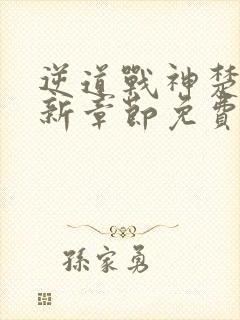 逆道戰神楚
新章節免費
孫家勇